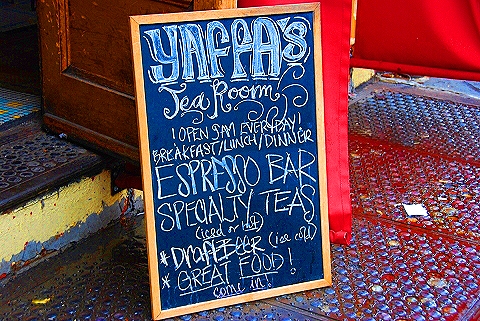 YAFFA's
Tea Room
! OPEN 8AM EVERYDAY!
BREAKFAST/LUNCH/DINNER
ESPRESSO BAR
SPECIALTY TEAS
(iced or hot)
*Draft Beer (ice cold)
* GREAT FOOD!
come in!